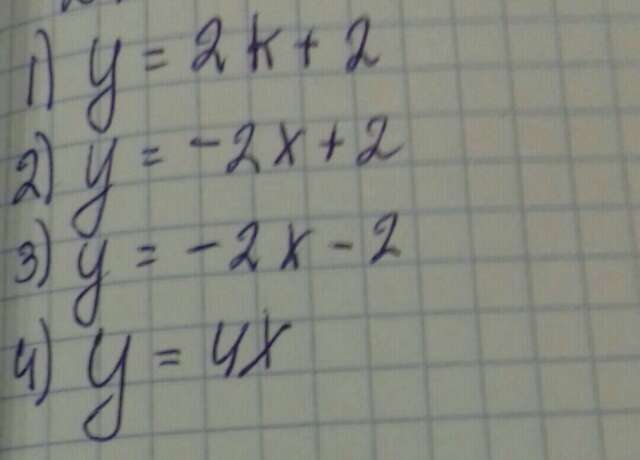 1) y = 2x + 2
2) y = -2x + 2
3) y = -2x - 2
4) y = 4x